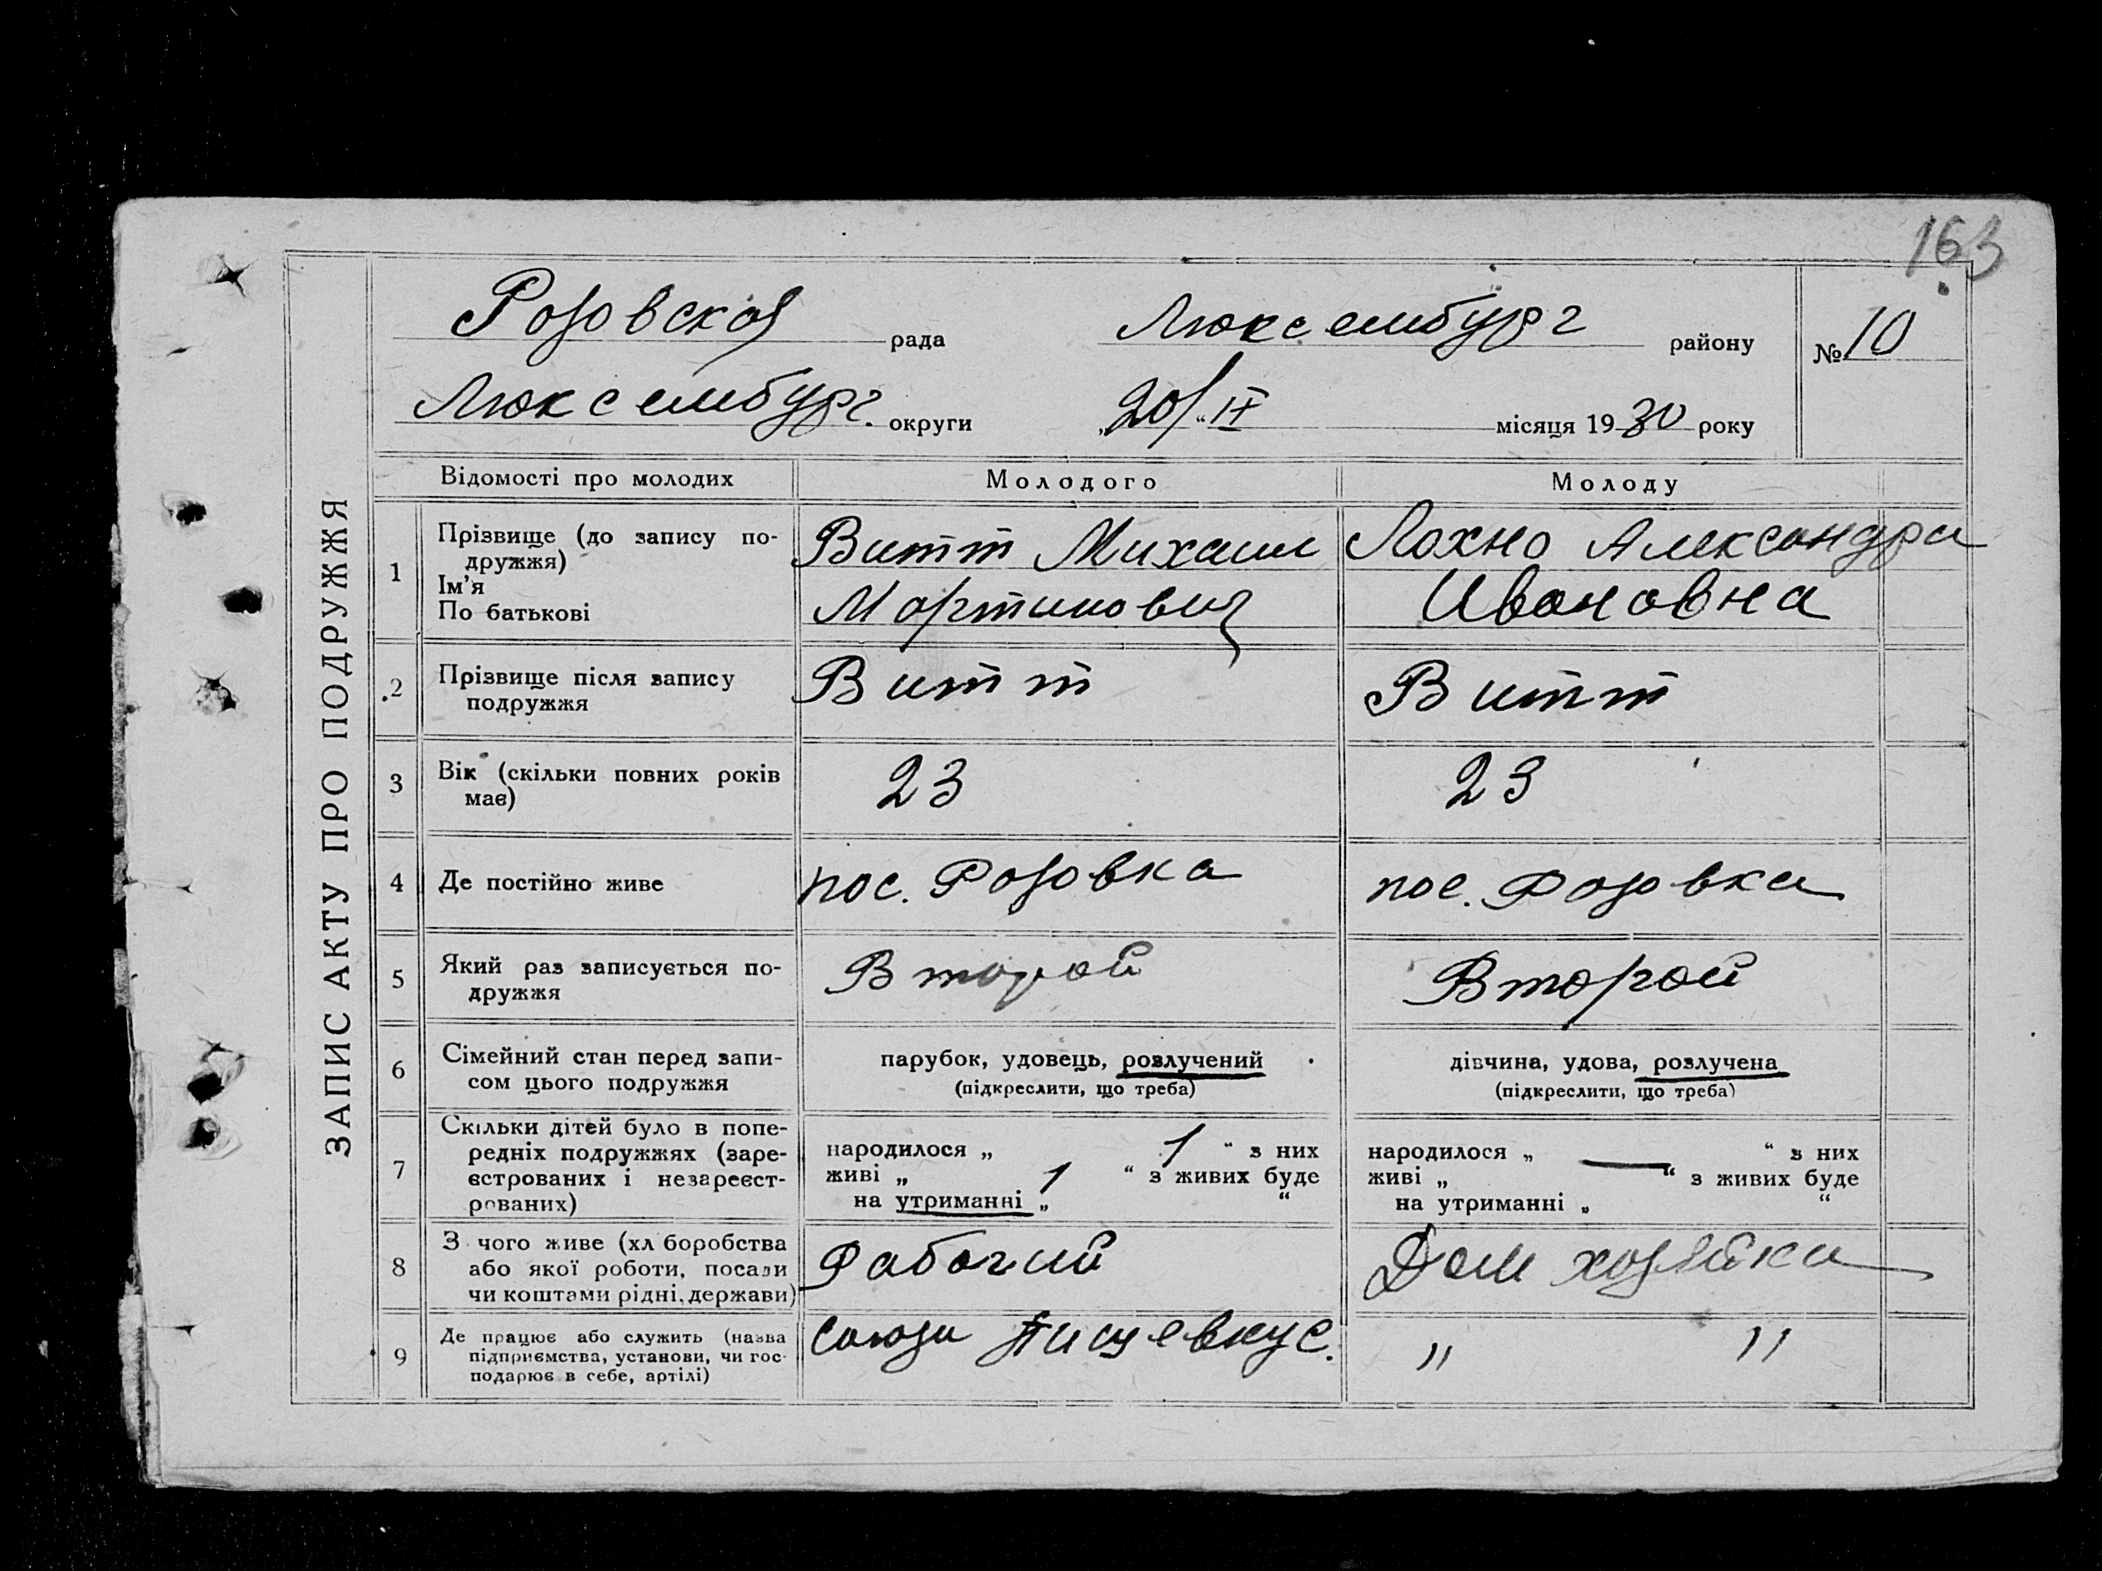 163
ЗАПИС АКТУ ПРО ПОДРУЖЖЯ
Розовская рада Люксембург району №10
Люксембург. округи „20/“ IX місяця 1930 року
Відомості про молодих Молодого Молоду
1 Прізвище (до запису по-
дружжя)
Ім'я
По батькові
Витт Михаил
Мартинович
Лохно Александра
Ивановна
2 Прізвище після запису
подружжя
Витт
Витт
3 Вік (скільки повних років
має)
23
23
4 Де постійно живе
пос. Розовка
пос. Розовка
5 Який раз записується по-
дружжя
Второй
Второй
6 Сімейний стан перед запи-
сом цього подружжя
парубок, удовець, розлучений
(підкреслити, що треба)
дівчина, удова, розлучена
(підкреслити, що треба)
7 Скільки дітей було в попе-
редніх подружжях (заре-
єстрованих і незареєст-
рованих)
народилося „ 1 “ з них
живі „ 1 “ з живих буде
на утриманні „ “
народилося „ — “ з них
живі „ “ з живих буде
на утриманні „ “
8 З чого живе (хліборобства
або якої роботи, посади
чи коштами рідні, держави)
Рабочий
Дом хозяйка
9 Де працює або служить (назва
підприємства, установи, чи гос-
подарює в себе, артілі)
союза Пищевкус.
" "